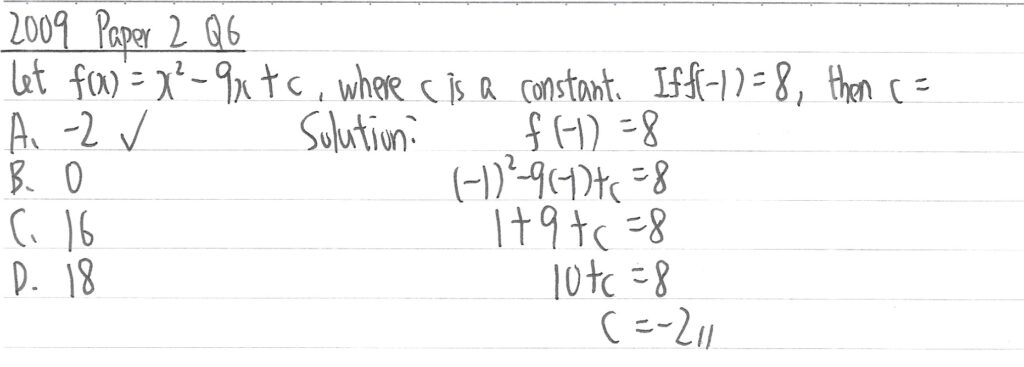 2009 Paper 2 Q6
Let f(x) = x² - 9x + c, where c is a constant. If f(-1) = 8, then c =
A. -2 ✓ Solution: f(-1) = 8
B. 0 (-1)²-9(-1)+c = 8
C. 16 1+9+c = 8
D. 18 10+c = 8
c = -2//